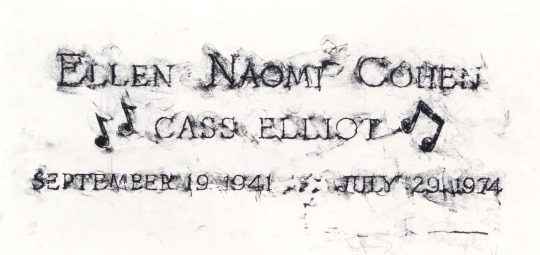 ELLEN NAOMI COHEN
CASS ELLIOT
SEPTEMBER 19 1941 JULY 29 1974